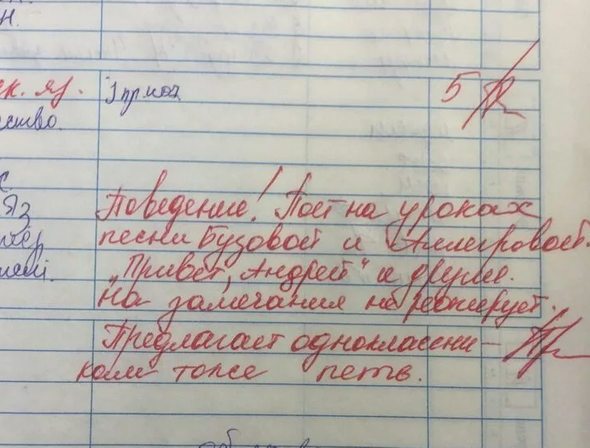 н.
ск. яз.
5
ство.
Яз
Поведение! Поёт на уроках
песни Бузовой и Аллегровой.
„Привет, Андрей“ и другие.
На замечания не реагирует.
Предлагает одноклассни-
кам тоже петь.